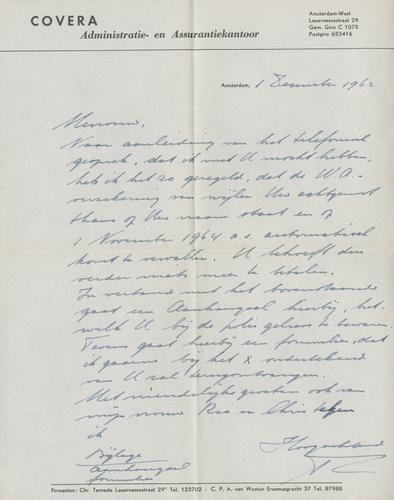 COVERA
Administratie- en Assurantiekantoor
Amsterdam-West
Lauernessestraat 29
Gem. Giro C 1075
Postgiro 653416
Amsterdam, 1 December 1962
Mevrouw,
Naar aanleiding van het telefonisch
gesprek, dat ik met U mocht hebben,
heb ik het zo geregeld, dat de W.A.
verzekering van wijlen Uw echtgenoot
thans op Uw naam staat en op
1 November 1964 a.s. automatisch
komt te vervallen. U behoeft dus
verder niets meer te betalen.
In verband met het bovenstaande
gaat een Aanhangsel hierbij, het-
welk U bij de polis gelieve te bewaren.
Tevens gaat hierbij een formulier, dat
ik gaarne bij het X ondertekend
van U zal terugontvangen.
Met vriendelijke groeten ook van
mijn vrouw Ria en
ik
Hoogachtend
Bijlage
Aanhangsel
formulier
Firmanten: Chr. Ternede Lauernessestraat 29" Tel. 123702 - C. P. A. van Westen Erasmusgracht 37 Tel. 87988